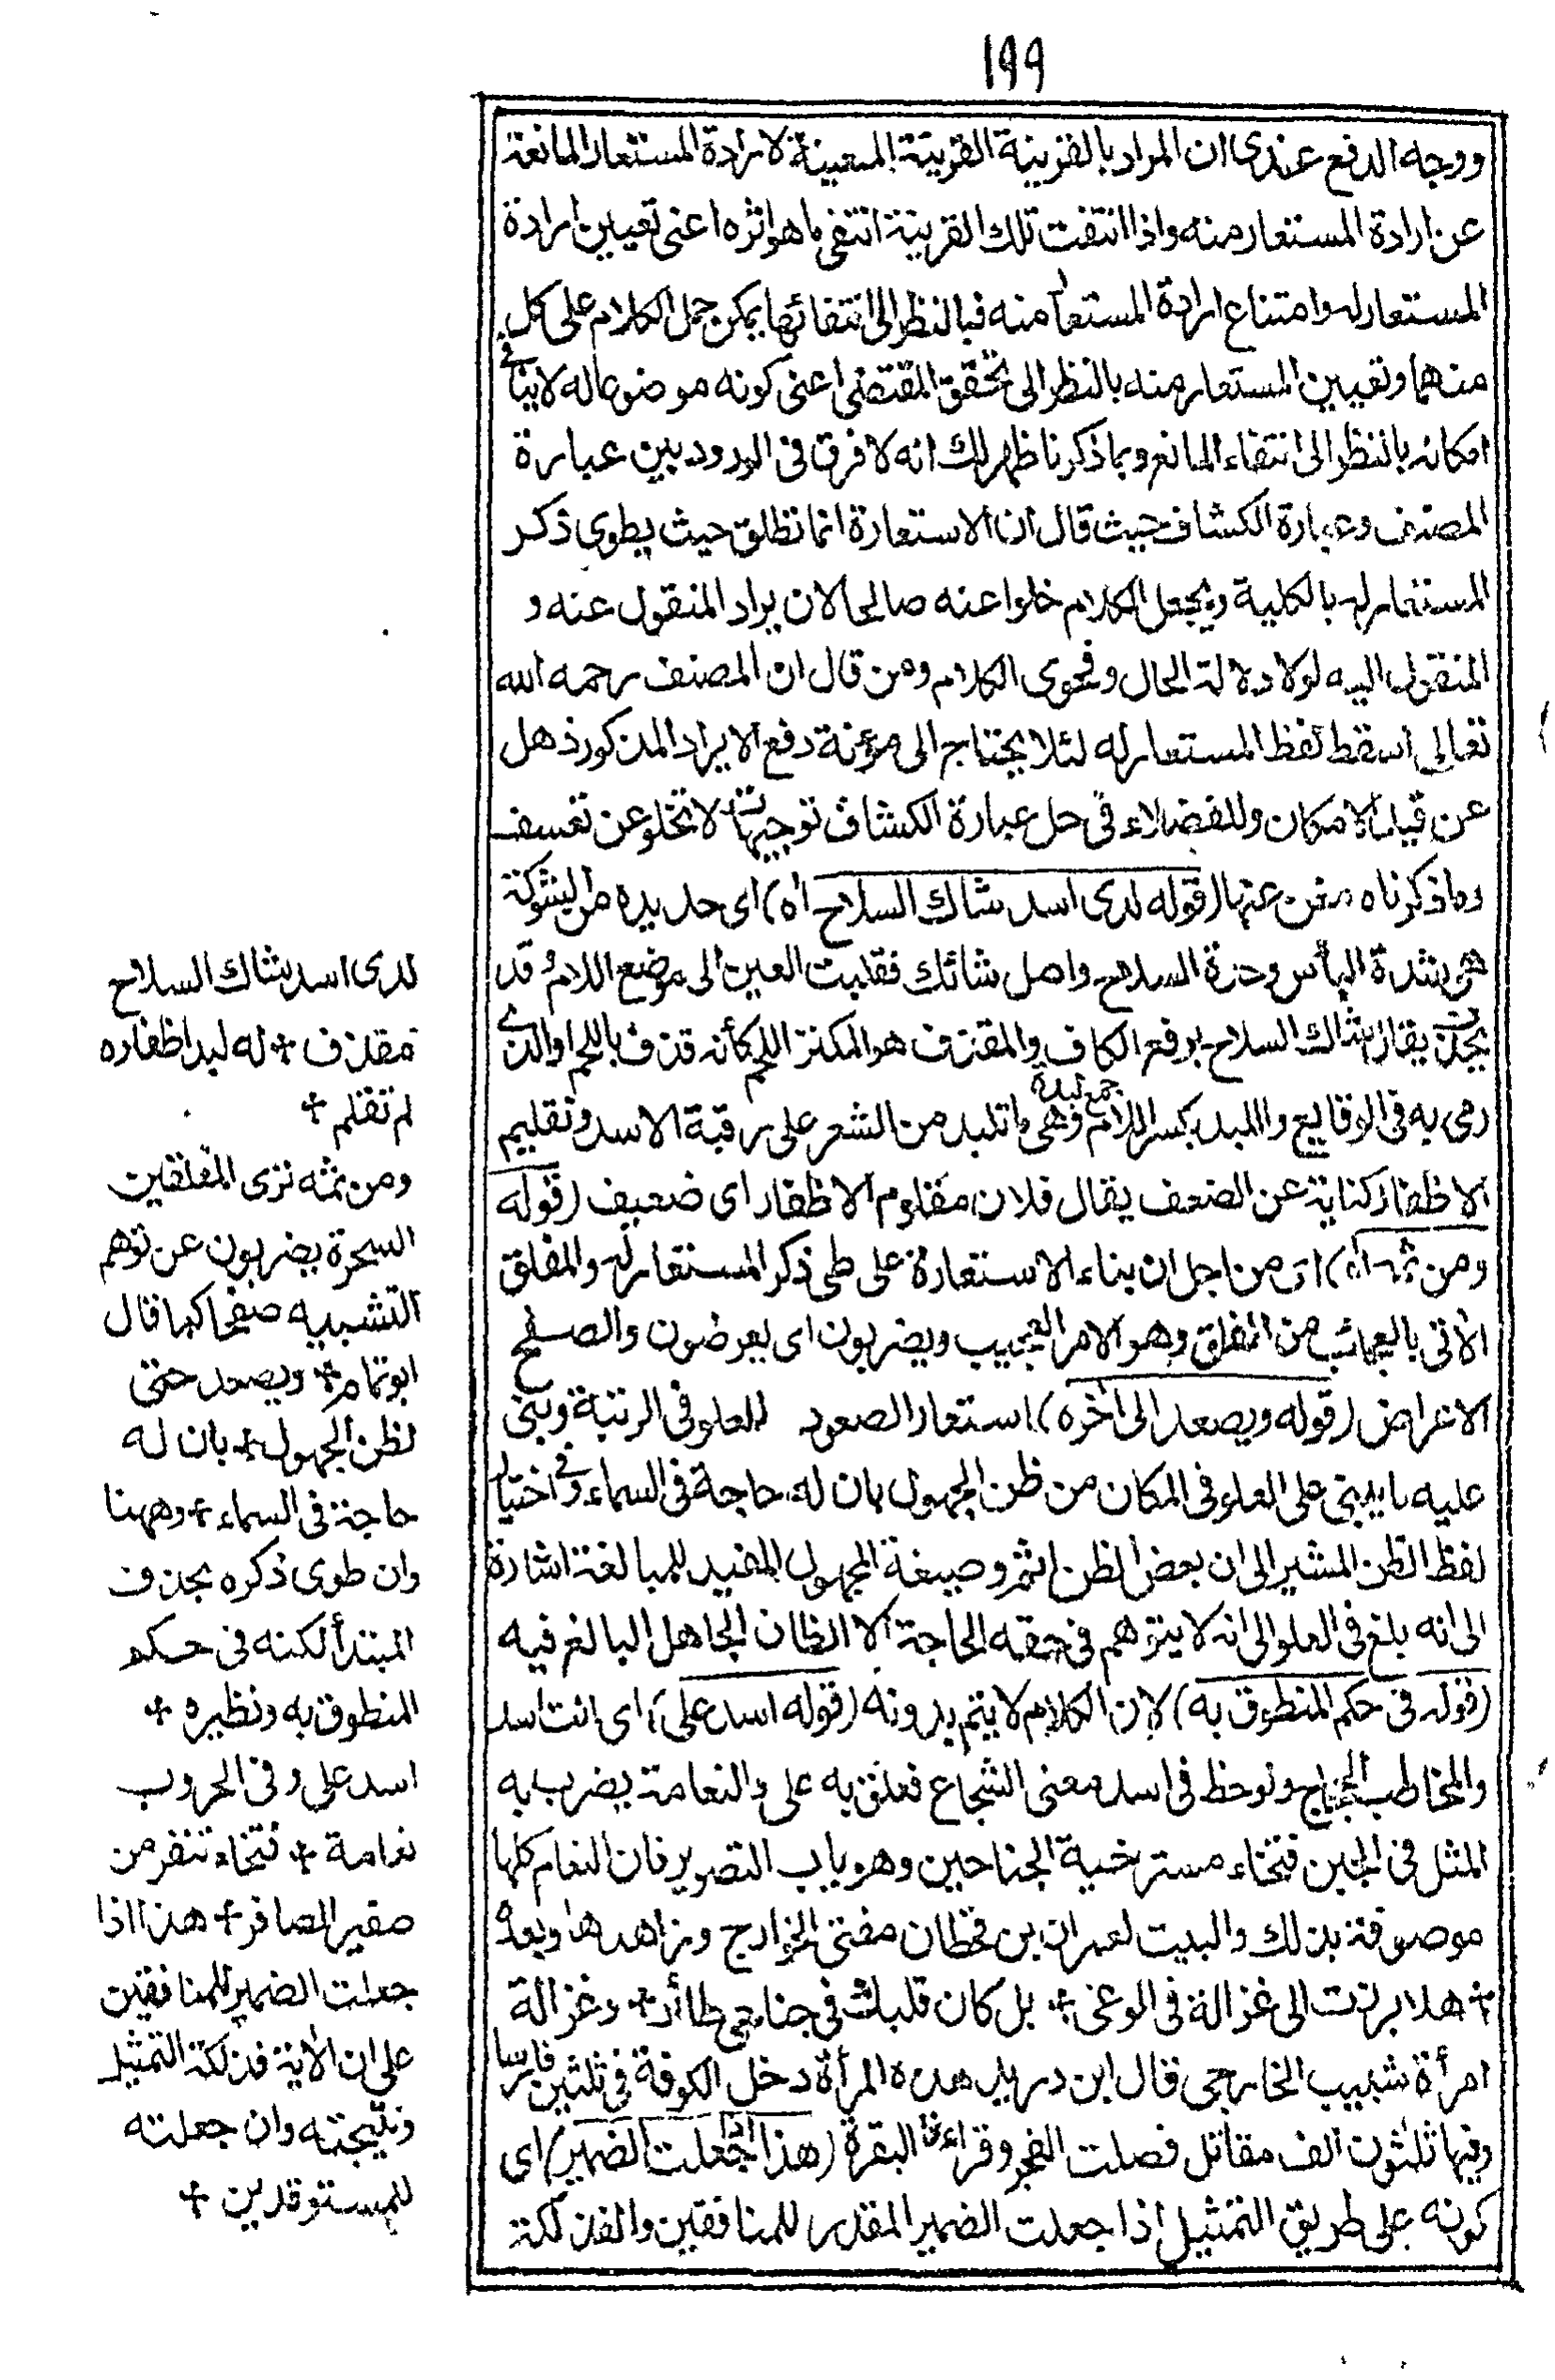 ١٩٩
ووجه الدفع عندى ان المراد بالقرينة القرينة المعينة لارادة المستعار المانعة
عن ارادة المستعار منه واذا انتفت تلك القرينة انتفى ما هو اثره اعنى تعيين ارادة
المستعار له وامتناع ارادة المستعار منه فبالنظر الى انتفائها يمكن حمل الكلام على كل
منهما وتعيين المستعار منه بالنظر الى تحقق المقتضى اعنى كونه موضوعا له لا ينافى
امكانه بالنظر الى انتفاء المانع وبما ذكرنا ظهر لك انه لا فرق فى الورود بين عبارة
المصنف وعبارة الكشاف حيث قال ان الاستعارة انما تطلق حيث يطوى ذكر
المستعار له بالكلية ويجعل الكلام خلوا عنه صالحا لان يراد المنقول عنه و
المنقول اليه لولا دلالة الحال وفحوى الكلام ومن قال ان المصنف رحمه الله
تعالى اسقط لفظ المستعار له لئلا يحتاج الى مؤنة دفع الايراد المذكور ذهل
عن قيد الامكان وللفضلاء فى حل عبارة الكشاف توجيهات لا تخلو عن تعسف
وما ذكرناه مغن عنها (قوله لدى اسد شاك السلاح اه) اى حديده من الشوكة
هى شدة البأس وحدة السلاح واصل شائك فقلبت العين الى موضع اللام وقد
يحذف يقال شاك السلاح برفع الكاف والمقذف هو المكنز اللحم كأنه قذف باللحم او الذى
رمى به فى الوقايع واللبد بكسر اللام جمع لبدة وهى ما تلبد من الشعر على رقبة الاسد وتقليم
الاظفار كناية عن الضعف يقال فلان مقلوم الاظفار اى ضعيف (قوله
ومن ثمه اه) اى من اجل ان بناء الاستعارة على طى ذكر المستعار له والمفلق
الاتى بالعجائب من الفلق وهو الامر العجيب ويضربون اى يعرضون والصفح
الاعراض (قوله ويصعد الى اخره) استعار الصعود للعلو فى الرتبة وبنى
عليه ما يبنى على العلو فى المكان من ظن الجهول بان له حاجة فى السماء وفى اختيار
لفظ الظن المشير الى ان بعض الظن اثم وصيغة الجهول المفيد للمبالغة اشارة
الى انه بلغ فى العلو الى انه لا يتوهم فى حقه الحاجة الا الظان الجاهل البالغ فيه
(قوله فى حكم المنطوق به) لان الكلام لا يتم بدونه (قوله اسد على) اى انت اسد
والمخاطب الحجاج ولوحظ فى اسد معنى الشجاع فعلق به على والنعامة يضرب به
المثل فى الجبن فتخاء مسترخية الجناحين وهو باب التصوير فان النعام كلها
موصوفة بذلك والبيت لعمران بن قحطان مفتى الخوارج وزاهدها وبعده
+ هلا برزت الى غزالة فى الوغى + بل كان قلبك فى جناحى طائر + وغزالة
امرأة شبيب الخارجى قال ابن دريد هذه المرأة دخل الكوفة فى ثلثين فارسا
وفيها ثلثون الف مقاتل فصلت الفجر وقراءت البقرة (هذا اذا جعلت الضمير) اى
كونه على طريق التمثيل اذا جعلت الضمير المقدر للمنافقين والفذلكة
لدى اسد شاك السلاح
مقذف + له لبد اظفاره
لم تقلم +
ومن ثمه ترى المفلقين
السحرة يضربون عن توهم
التشبيه صفحا كما قال
ابو تمام + ويصعد حتى
لظن الجهول + بان له
حاجة فى السماء + وههنا
وان طوى ذكره بحذف
المبتدأ لكنه فى حكم
المنطوق به ونظيره +
اسد على وفى الحروب
نعامة + فتخاء تنفر من
صفير الصافر + هذا اذا
جعلت الضمير للمنافقين
على ان الاية فذلكة التمثيل
ونتيجته وان جعلته
للمستوقدين +